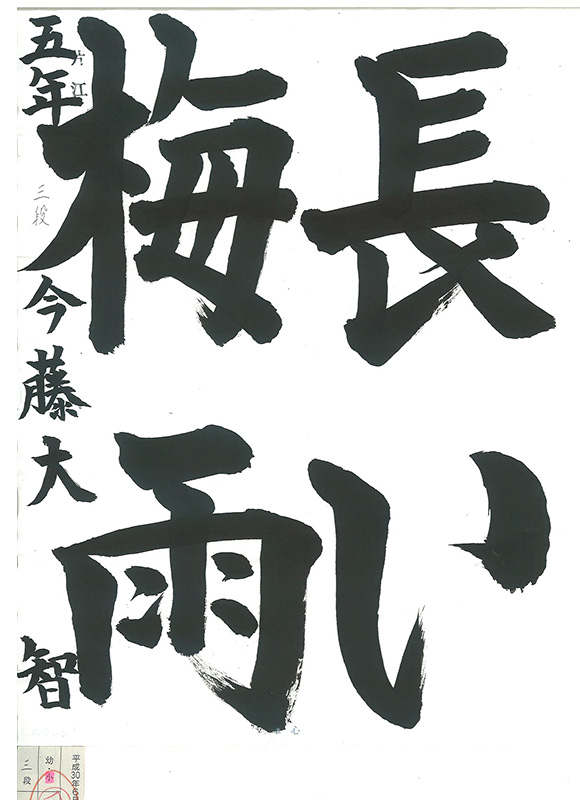 長い
梅雨
片江
五年
三段
今藤大智
平成30年6
幼・小
三段